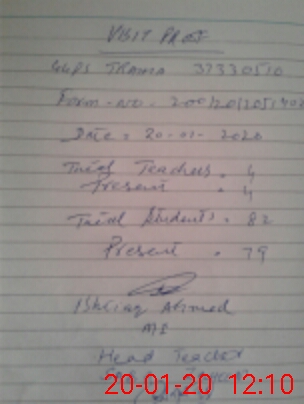 VISIT PROOF
GGPS TRAMA 37330510
Form - NO. 20012012051402
Date = 20-01-2020
Total Teachers = 4
Present = 4
Total Students = 82
Present = 79
Ishtiaq Ahmed
Head Teacher
20-01-20 12:10